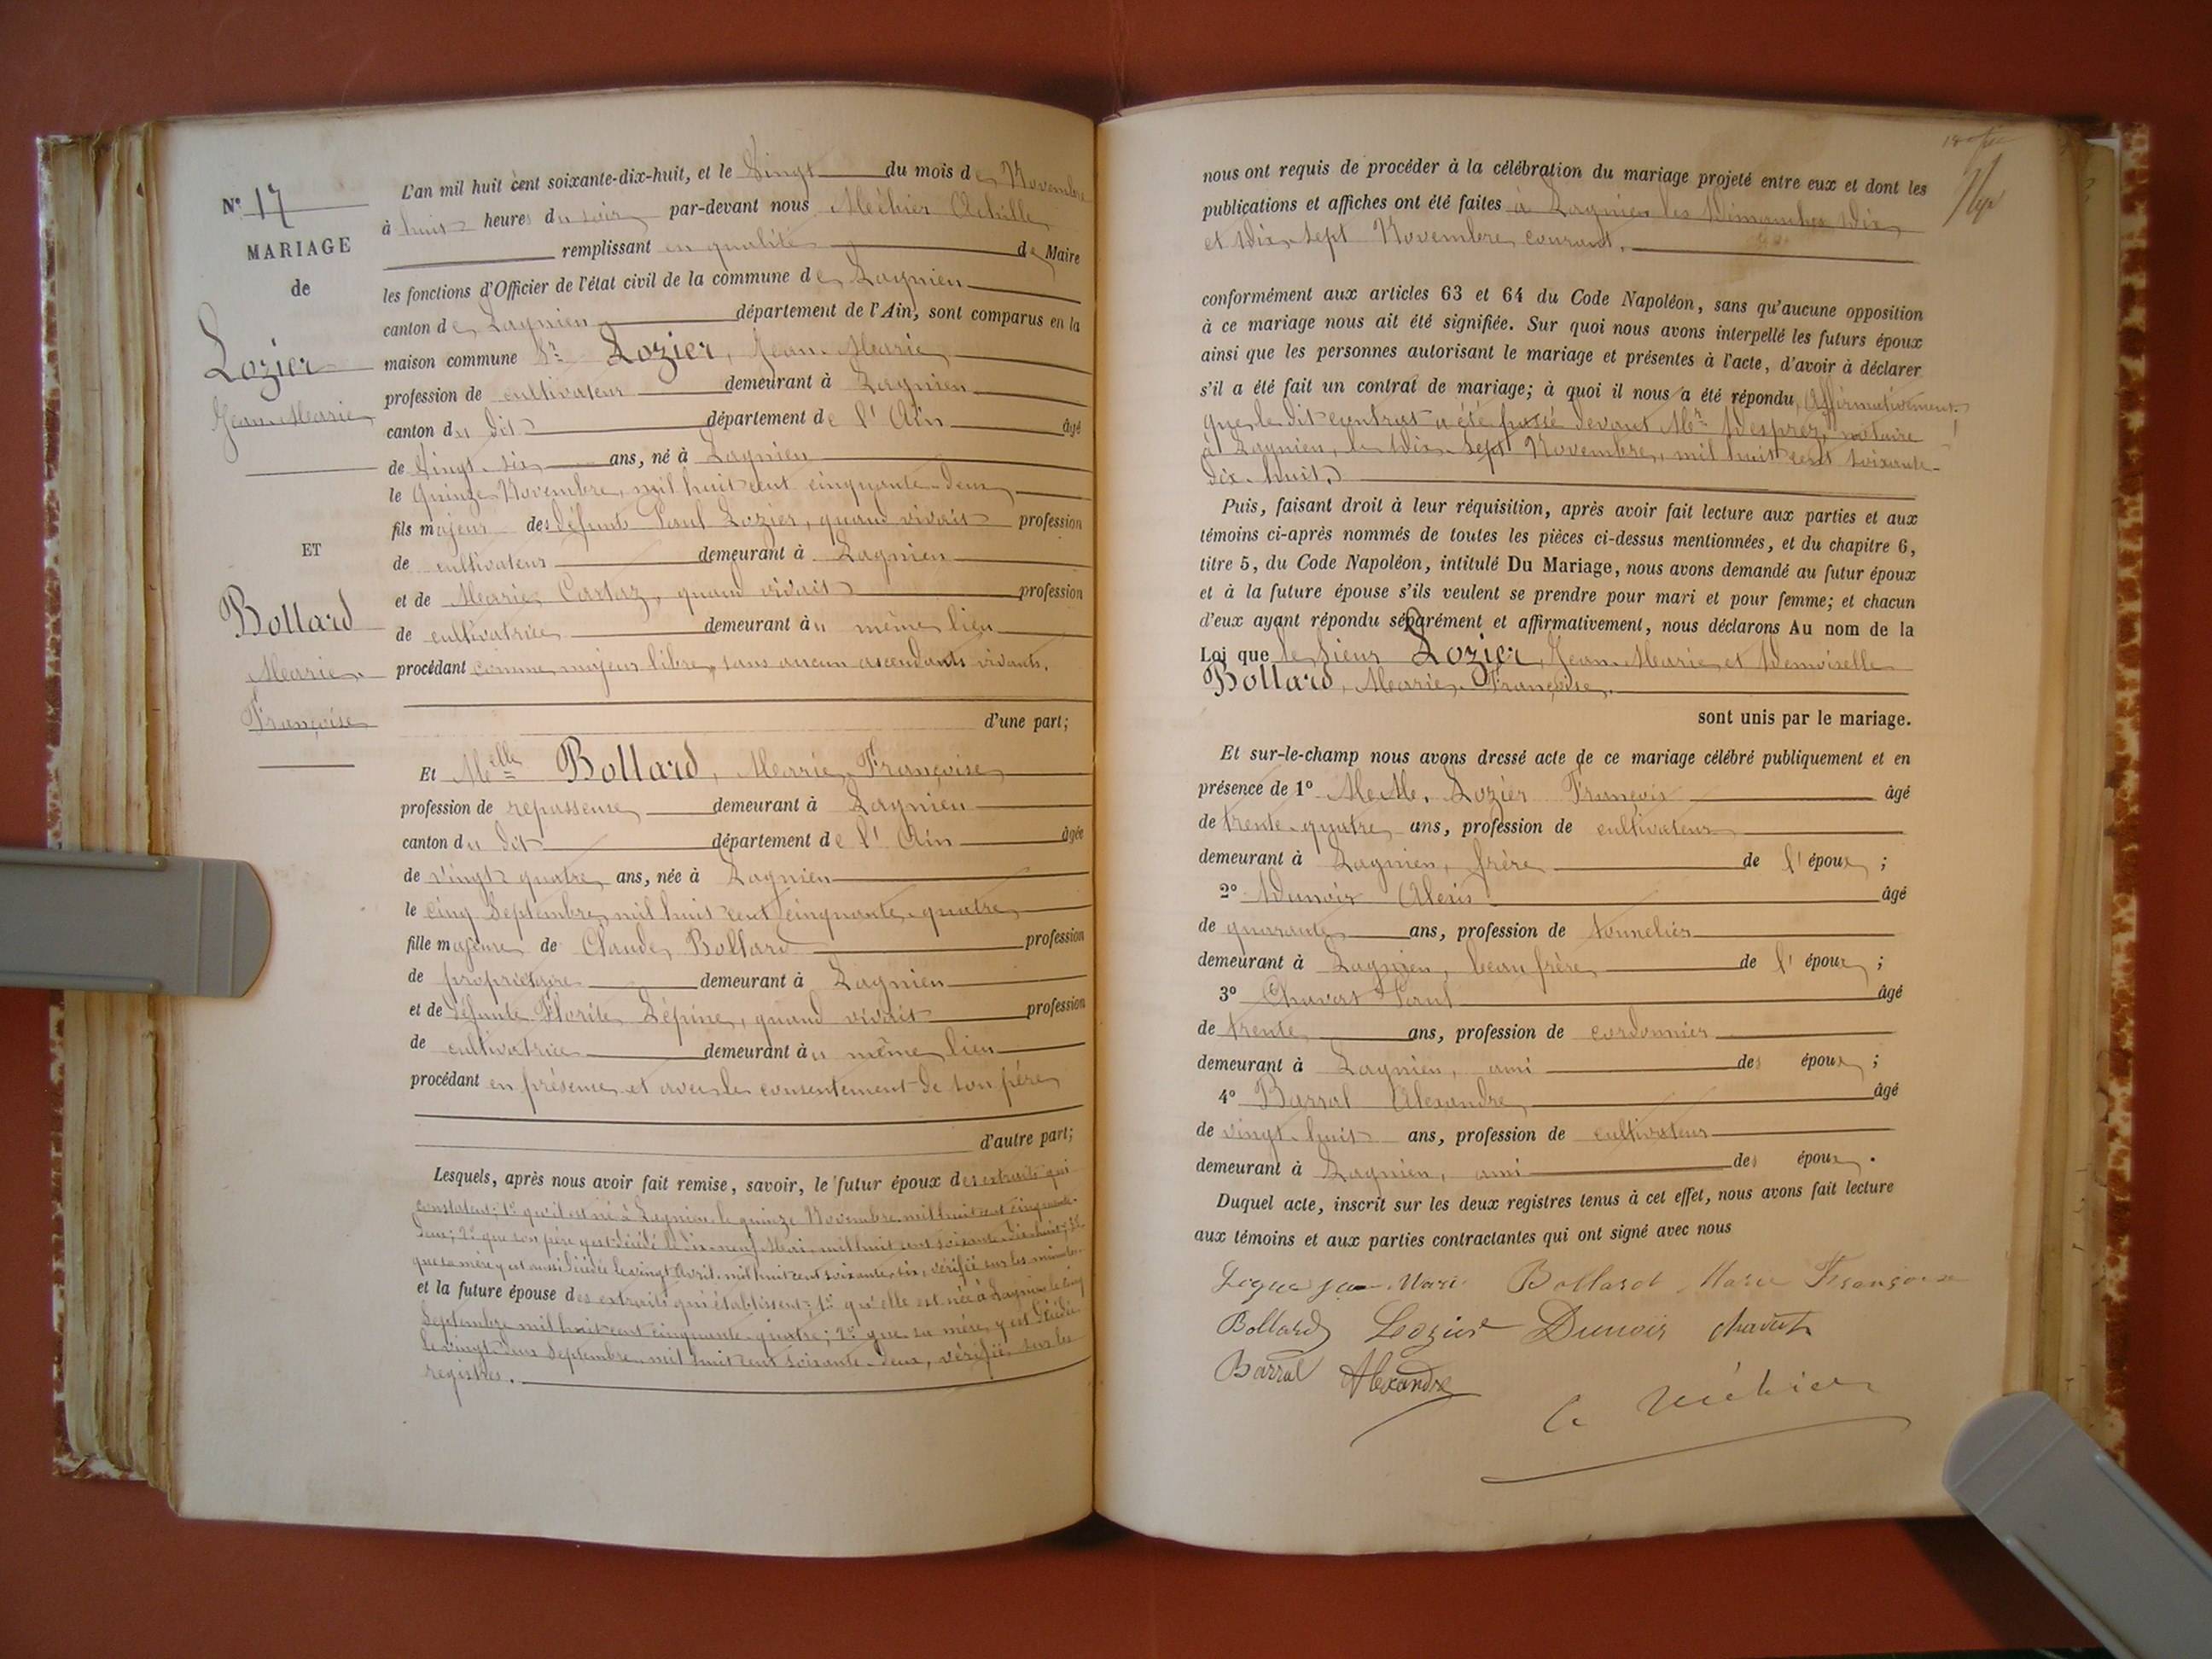 N° 17
MARIAGE
de
Lozier
Jean-Marie
ET
Bollard
Marie
Françoise
L'an mil huit cent soixante-dix-huit, et le Vingt du mois de Novembre
à huit heures du soir par-devant nous Méhier Achille
remplissant en qualité de Maire
les fonctions d'Officier de l'état civil de la commune de Lagnieu
canton de Lagnieu département de l'Ain, sont comparus en la
maison commune Sr Lozier, Jean-Marie
profession de cultivateur demeurant à Lagnieu
canton du dit département de l'Ain âgé
de vingt-six ans, né à Lagnieu
le quinze Novembre, mil huit cent cinquante-deux
fils majeur des défunts Paul Lozier, quand vivait profession
de cultivateur demeurant à Lagnieu
et de Marie Cartaz, quand vivait profession
de cultivatrice demeurant au même lieu
procédant comme majeur libre, sans aucun ascendants vivants.
d'une part;
Et Melle Bollard, Marie-Françoise
profession de repasseuse demeurant à Lagnieu
canton du dit département de l'Ain âgée
de vingt-quatre ans, née à Lagnieu
le cinq Septembre, mil huit cent cinquante-quatre
fille majeure de Claude Bollard profession
de propriétaire demeurant à Lagnieu
et de défunte Florite Lépine, quand vivait profession
de cultivatrice demeurant au même lieu
procédant en présence et avec le consentement de son père
d'autre part;
Lesquels, après nous avoir fait remise, savoir, le futur époux des extraits qui
constatent: 1° qu'il est né à Lagnieu le quinze Novembre mil huit cent cinquante-
deux; 2° que son père y est décédé le dix-neuf Mai mil huit cent soixante-dix-huit; 3°
que sa mère y est aussi décédée le vingt Avril mil huit cent soixante-six, vérifié sur les minutes
et la future épouse des extraits qui établissent: 1° qu'elle est née à Lagnieu le cinq
Septembre mil huit cent cinquante-quatre; 2° que sa mère y est décédée
le vingt-deux Septembre mil huit cent soixante-deux, vérifié sur les
registres.
nous ont requis de procéder à la célébration du mariage projeté entre eux et dont les
publications et affiches ont été faites à Lagnieu les Dimanches Dix
et Dix-sept Novembre courant.
conformément aux articles 63 et 64 du Code Napoléon, sans qu'aucune opposition
à ce mariage nous ait été signifiée. Sur quoi nous avons interpellé les futurs époux
ainsi que les personnes autorisant le mariage et présentes à l'acte, d'avoir à déclarer
s'il a été fait un contrat de mariage; à quoi il nous a été répondu Affirmativement.
que le dit contrat a été passé devant Me Desprez, notaire
à Lagnieu, le Dix-sept Novembre, mil huit cent soixante-
dix-huit.
Puis, faisant droit à leur réquisition, après avoir fait lecture aux parties et aux
témoins ci-après nommés de toutes les pièces ci-dessus mentionnées, et du chapitre 6,
titre 5, du Code Napoléon, intitulé Du Mariage, nous avons demandé au futur époux
et à la future épouse s'ils veulent se prendre pour mari et pour femme; et chacun
d'eux ayant répondu séparément et affirmativement, nous déclarons Au nom de la
Loi que le Sieur Lozier, Jean-Marie et Demoiselle
Bollard, Marie-Françoise.
sont unis par le mariage.
Et sur-le-champ nous avons dressé acte de ce mariage célébré publiquement et en
présence de 1° M.M. Lozier François âgé
de trente-quatre ans, profession de cultivateur
demeurant à Lagnieu, frère de l'époux;
2° Dunoir Alexis âgé
de quarante ans, profession de tonnelier
demeurant à Lagnieu, beau frère de l'époux;
3° Chavert Paul âgé
de trente ans, profession de cordonnier
demeurant à Lagnieu, ami des époux;
4° Barral Alexandre âgé
de vingt-huit ans, profession de cultivateur
demeurant à Lagnieu, ami des époux.
Duquel acte, inscrit sur les deux registres tenus à cet effet, nous avons fait lecture
aux témoins et aux parties contractantes qui ont signé avec nous
Marie Bollard Marie Françoise
Bollard Lozier Dunoir
Barral Alexandre
Méhier